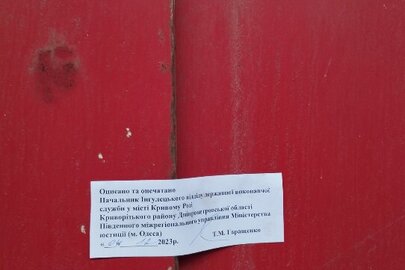 Описано та опечатано
Начальник Інгулецького відділу державної виконавчої
служби у місті Кривому Розі
Криворізького району Дніпропетровської області
Південного міжрегіонального управління Міністерства
юстиції (м. Одеса)
2023р. Т.М. Гаращенко